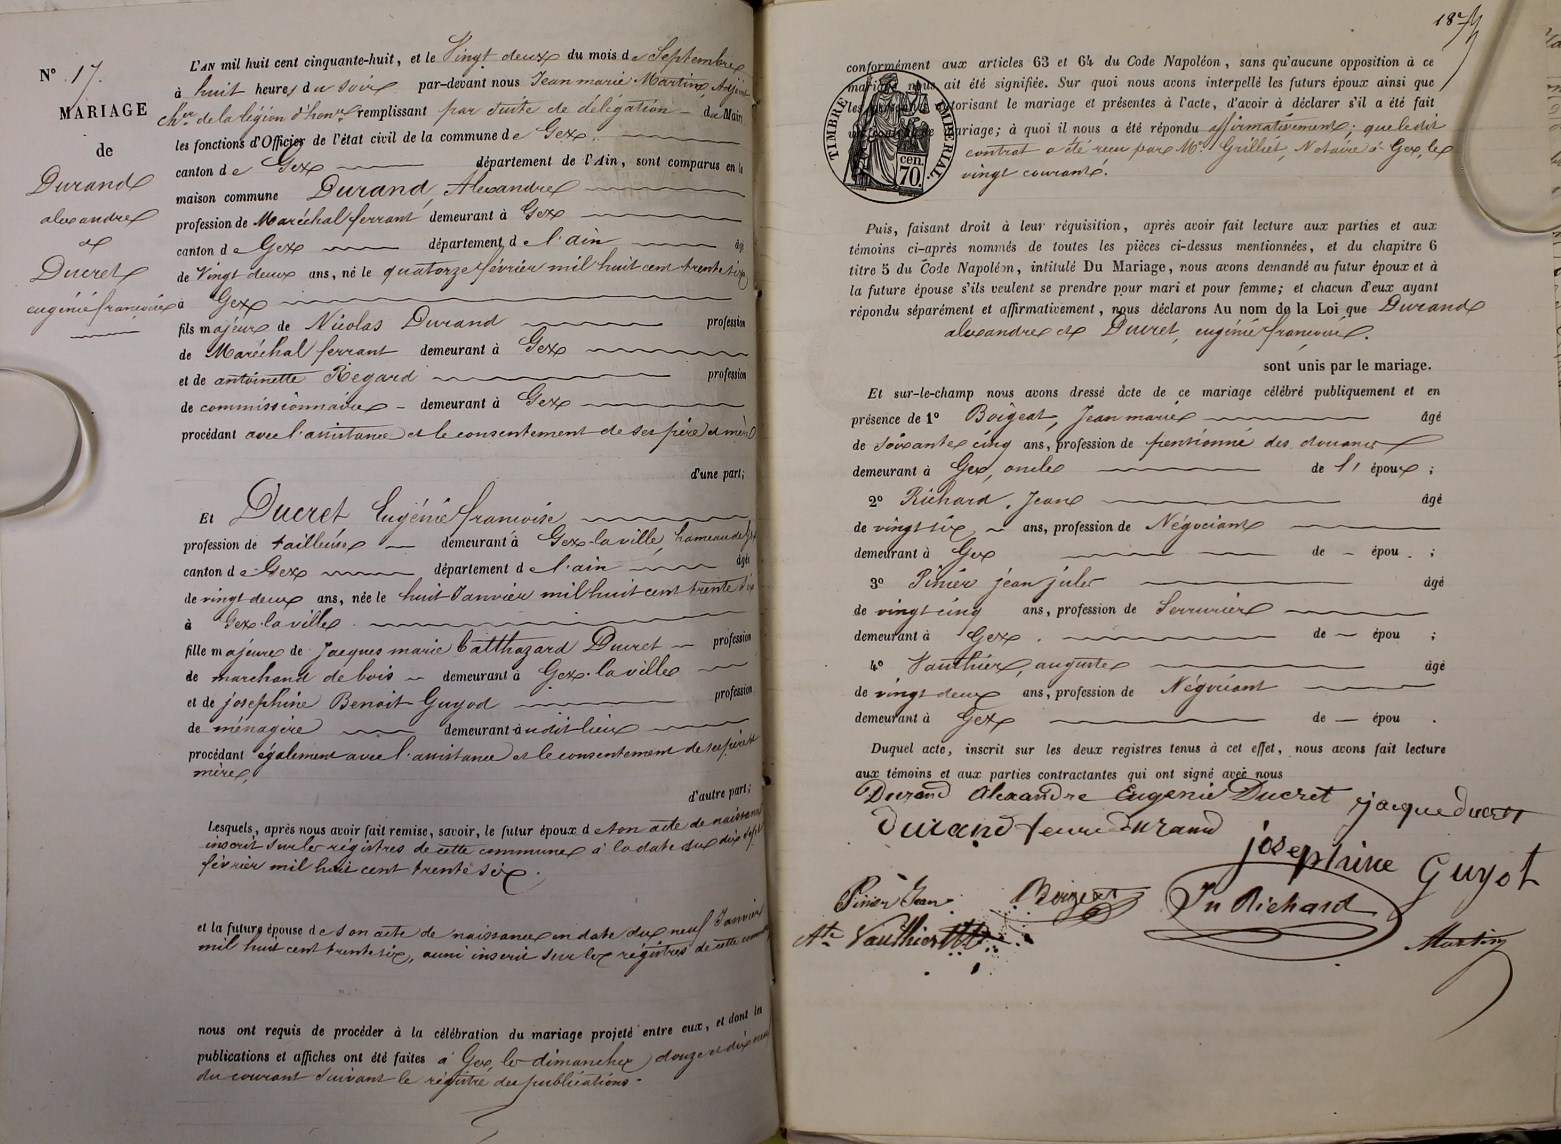 N° 17.
MARIAGE
de
Durand
alexandre
et
Ducret
eugénie françoise
L'AN mil huit cent cinquante-huit, et le Vingt deux du mois de Septembre
à huit heures du soir par-devant nous Jean marie Martin, Adjoint
Cher de la légion d'honr remplissant par suite de délégation du Maire
les fonctions d'Officier de l'état civil de la commune de Gex
canton de Gex département de l'Ain, sont comparus en la
maison commune Durand, Alexandre
profession de Maréchal ferrant demeurant à Gex
canton de Gex département de l'ain âgé
de Vingt deux ans, né le quatorze février mil huit cent trente six
à Gex
fils majeur de Nicolas Durand profession
de Maréchal ferrant demeurant à Gex
et de antoinette Regard profession
de commissionnaire demeurant à Gex
procédant avec l'assistance et le consentement de ses père et mère
d'une part;
Et Ducret Eugénie françoise
profession de tailleuse demeurant à Gex-la-ville, hameau de Gex
canton de Gex département de l'ain âgée
de vingt deux ans, née le huit Janvier mil huit cent trente six
à Gex-la-ville
fille majeure de Jacques marie Balthazard Ducret profession
de marchand de bois demeurant à Gex-la-ville
et de josephine Benoit Guyod profession
de ménagère demeurant à udit lieu
procédant également avec l'assistance et le consentement de ses père et
mère,
d'autre part;
Lesquels, après nous avoir fait remise, savoir, le futur époux de son acte de naissance
inscrit sur les registres de cette commune à la date du dix sept
février mil huit cent trente six.
et la future épouse de son acte de naissance en date du neuf Janvier
mil huit cent trente six, aussi inscrit sur les régistres de cette commune
nous ont requis de procéder à la célébration du mariage projeté entre eux, et dont les
publications et affiches ont été faites à Gex, les dimanches douze et dix neuf
du courant suivant le régistre des publications.
187
conformément aux articles 63 et 64 du Code Napoléon, sans qu'aucune opposition à ce
mariage nous ait été signifiée. Sur quoi nous avons interpellé les futurs époux ainsi que
les autorisant le mariage et présentes à l'acte, d'avoir à déclarer s'il a été fait
un contrat de mariage; à quoi il nous a été répondu affirmativement; que ledit
contrat a été reçu par Me Grilliet, Notaire à Gex, le
vingt courant.
TIMBRE IMPERIAL
cen.
70.
Puis, faisant droit à leur réquisition, après avoir fait lecture aux parties et aux
témoins ci-après nommés de toutes les pièces ci-dessus mentionnées, et du chapitre 6
titre 5 du Code Napoléon, intitulé Du Mariage, nous avons demandé au futur époux et à
la future épouse s'ils veulent se prendre pour mari et pour femme; et chacun d'eux ayant
répondu séparément et affirmativement, nous déclarons Au nom de la Loi que Durand
alexandre et Ducret, eugénie françoise.
sont unis par le mariage.
Et sur-le-champ nous avons dressé acte de ce mariage célébré publiquement et en
présence de 1° Boigeat, Jean marie âgé
de soixante cinq ans, profession de pensionné des douanes
demeurant à Gex, oncle de l'époux;
2° Richard, Jean âgé
de vingt six ans, profession de Négociant
demeurant à Gex de épou ;
3° Pinier jean jules âgé
de vingt cinq ans, profession de Serrurier
demeurant à Gex de épou ;
4° Vauthier, auguste âgé
de vingt deux ans, profession de Négociant
demeurant à Gex de épou .
Duquel acte, inscrit sur les deux registres tenus à cet effet, nous avons fait lecture
aux témoins et aux parties contractantes qui ont signé avec nous
Durand Alexandre Eugenie Ducret jacque ducret
Durand feme durand
josephine Guyot
Pinier Jean Boigeat Jn Richard
Ate Vauthier Martin